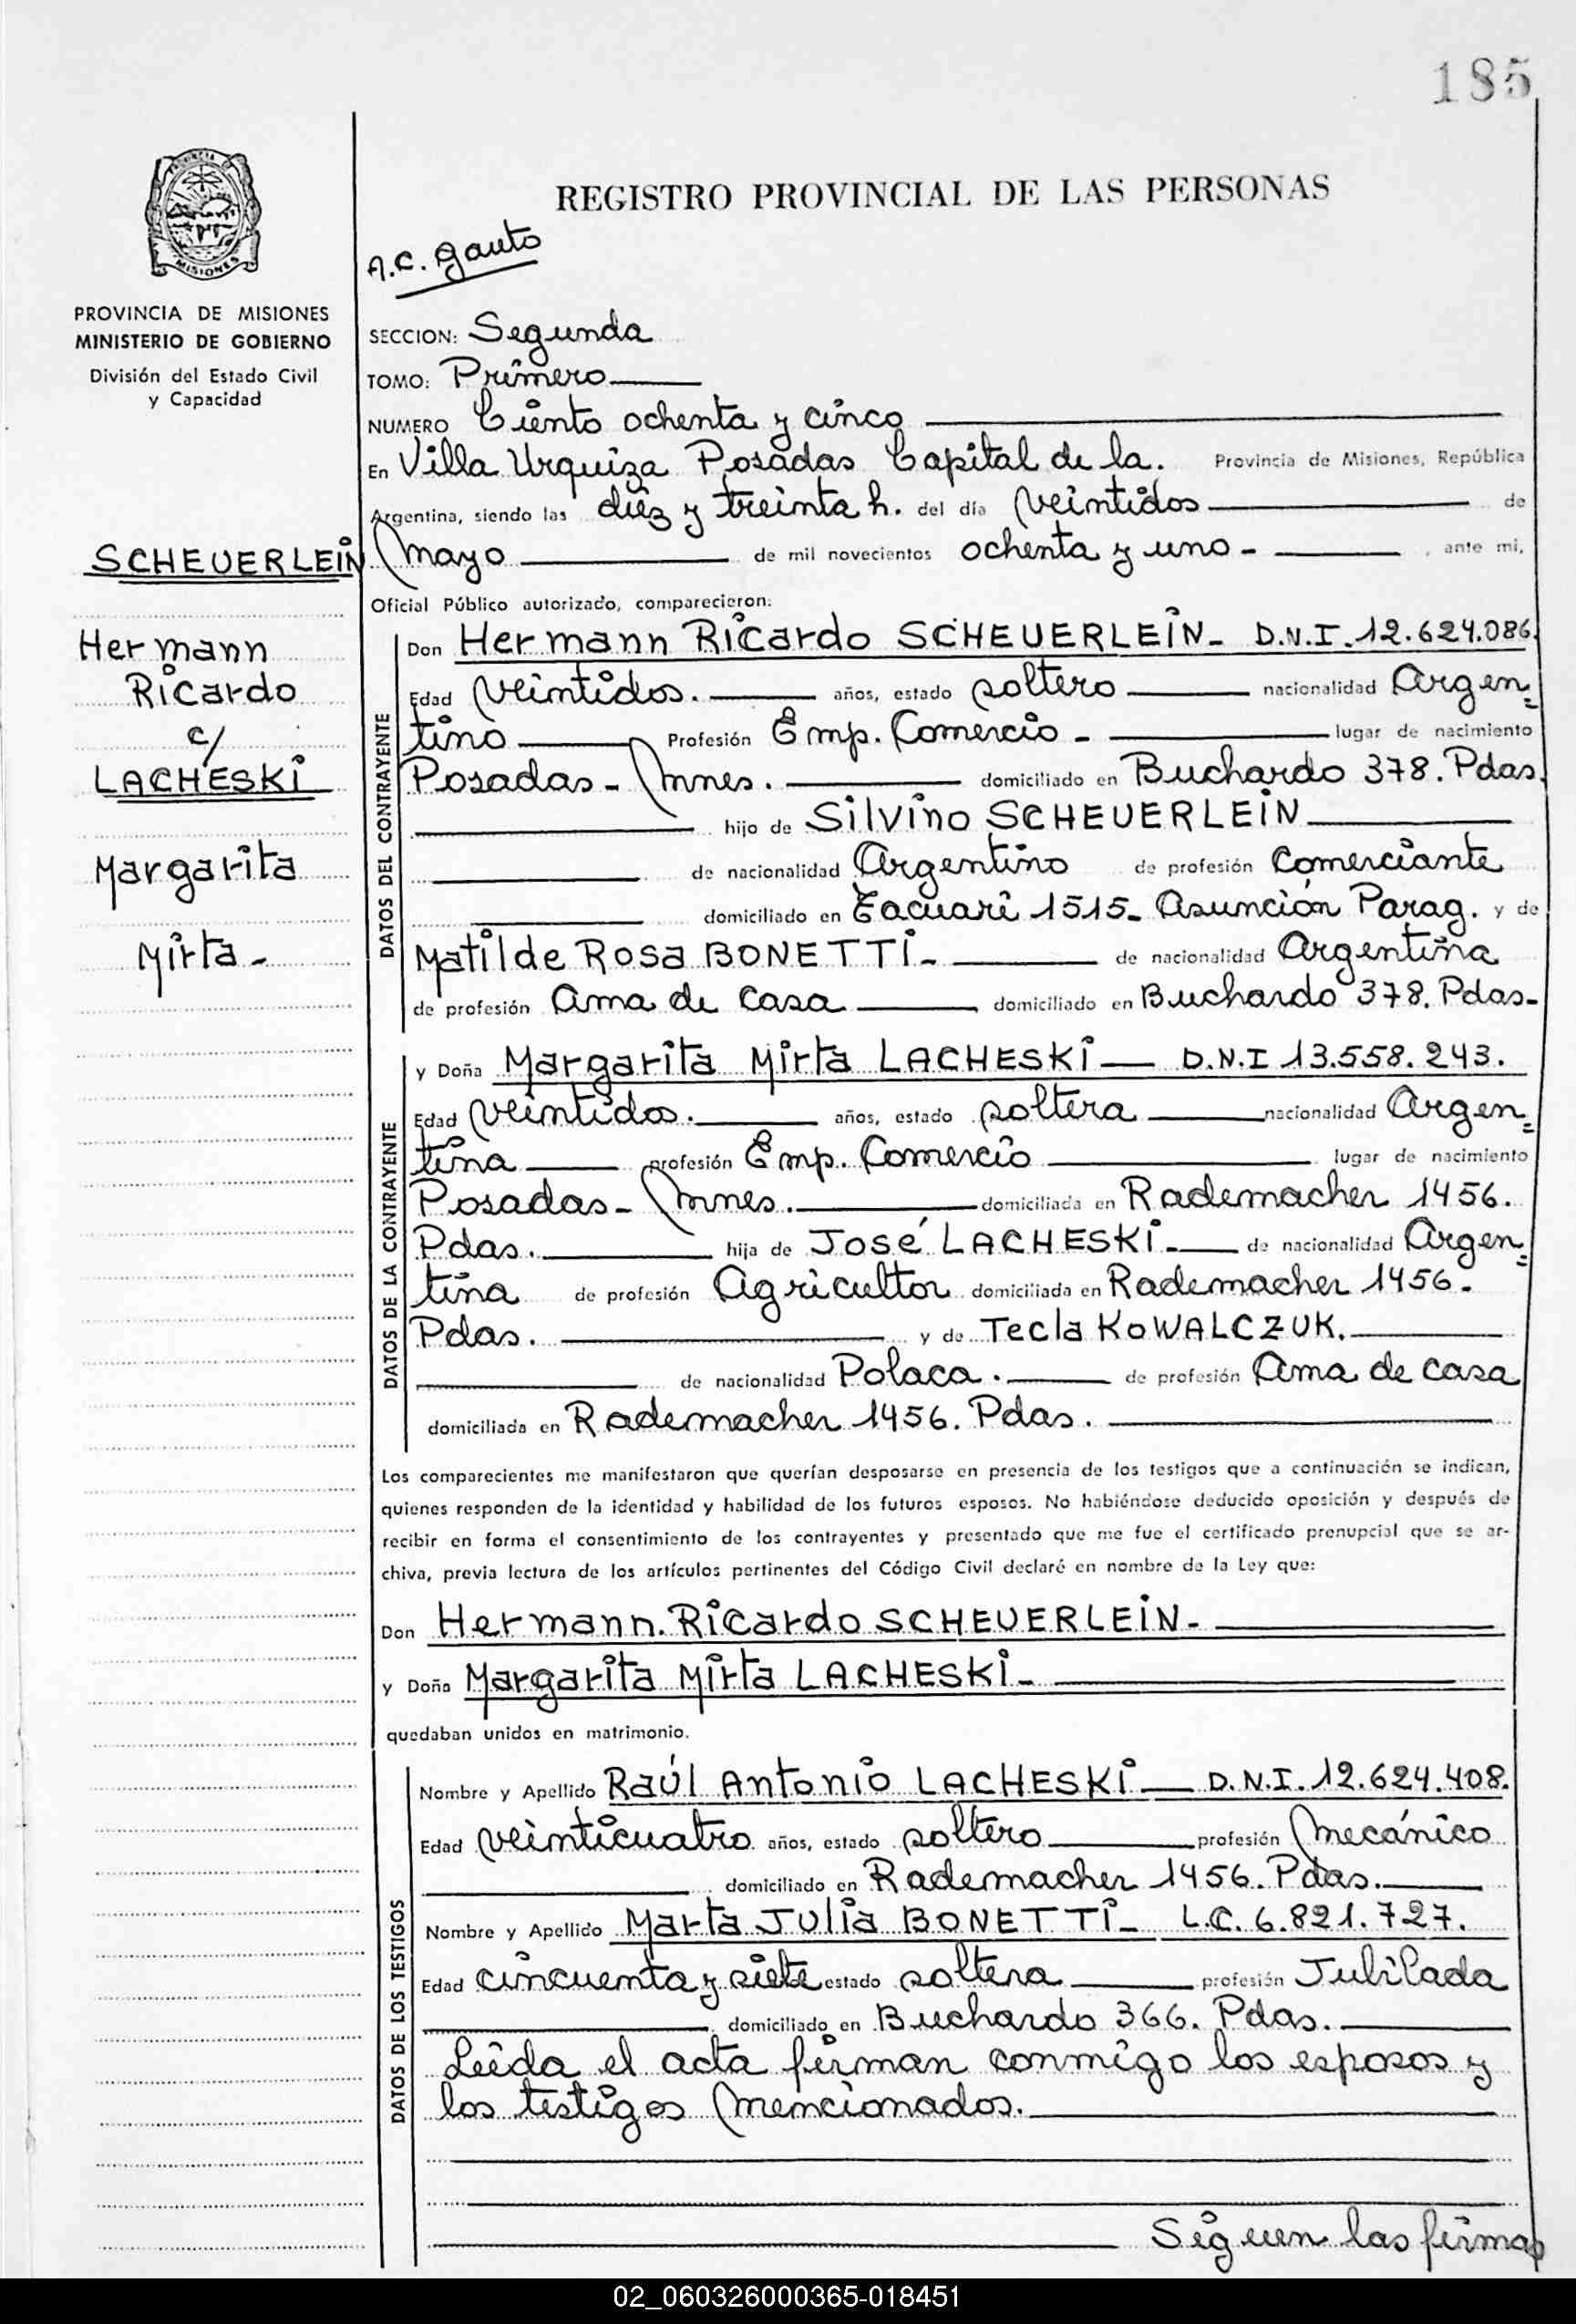 185
PROVINCIA
MISIONES
PROVINCIA DE MISIONES
MINISTERIO DE GOBIERNO
División del Estado Civil
y Capacidad
SCHEUERLEIN
Hermann
Ricardo
c/
LACHESKI
Margarita
Mirta-
REGISTRO PROVINCIAL DE LAS PERSONAS
A.C. Gauto
SECCION: Segunda
TOMO: Primero
NUMERO Ciento ochenta y cinco
En Villa Urquiza Posadas Capital de la. Provincia de Misiones, República
Argentina, siendo las diez y treinta h. del día veintidos de
mayo de mil novecientos ochenta y uno - , ante mi,
Oficial Público autorizado, comparecieron:
DATOS DEL CONTRAYENTE
Don Hermann Ricardo SCHEUERLEIN- D.N.I. 12.624.086.
Edad veintidos. años, estado soltero nacionalidad Argen=
tino Profesión Emp. Comercio - lugar de nacimiento
Posadas - Mnes. domiciliado en Buchardo 378. Pdas.
hijo de Silvino SCHEUERLEIN
de nacionalidad Argentino de profesión Comerciante
domiciliado en Tacuari 1515- Asunción Parag. y de
Matilde Rosa BONETTI- de nacionalidad Argentina
de profesión Ama de Casa domiciliado en Buchardo 378. Pdas-
DATOS DE LA CONTRAYENTE
y Doña Margarita Mirta LACHESKI D.N.I 13.558.243.
Edad veintidos. años, estado soltera nacionalidad Argen=
tina profesión Emp. Comercio lugar de nacimiento
Posadas- Mnes. domiciliada en Rademacher 1456.
Pdas. hija de José LACHESKI- de nacionalidad Argen=
tina de profesión Agricultor domiciliada en Rademacher 1456-
Pdas. y de Tecla KOWALCZUK.
de nacionalidad Polaca. de profesión Ama de casa
domiciliada en Rademacher 1456. Pdas.
Los comparecientes me manifestaron que querían desposarse en presencia de los testigos que a continuación se indican,
quienes responden de la identidad y habilidad de los futuros esposos. No habiéndose deducido oposición y después de
recibir en forma el consentimiento de los contrayentes y presentado que me fue el certificado prenupcial que se ar-
chiva, previa lectura de los artículos pertinentes del Código Civil declaré en nombre de la Ley que:
Don Hermann Ricardo SCHEUERLEIN-
y Doña Margarita Mirta LACHESKI-
quedaban unidos en matrimonio.
DATOS DE LOS TESTIGOS
Nombre y Apellido Raúl Antonio LACHESKI D.N.I. 12.624.408.
Edad veinticuatro años, estado soltero profesión mecánico
domiciliado en Rademacher 1456. Pdas.
Nombre y Apellido Marta Julia BONETTI- L.C. 6.821.727.
Edad cincuenta y siete estado soltera profesión Jubilada
domiciliado en Buchardo 366. Pdas.
Leida el acta firman conmigo los esposos y
los testigos mencionados.
Siguen las firmas
02_060326000365-018451